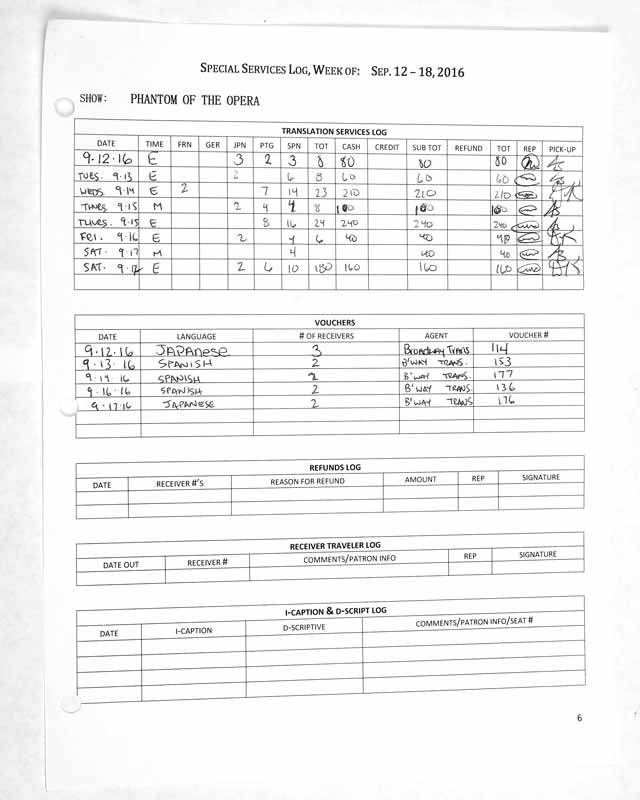 SPECIAL SERVICES LOG, WEEK OF: SEP. 12 – 18, 2016
SHOW: PHANTOM OF THE OPERA
TRANSLATION SERVICES LOG
DATE TIME FRN GER JPN PTG SPN TOT CASH CREDIT SUB TOT REFUND TOT REP PICK-UP
9.12.16 E 3 2 3 8 80 80 80
TUES. 9.13 E 2 6 8 60 60 60
WEDS. 9.14 E 2 7 14 23 210 210 210
THURS. 9.15 M 2 4 8 100 100 100
THURS. 9.15 E 8 16 24 240 240 240
FRI. 9.16 E 2 4 6 40 40 40
SAT. 9.17 M 4 40 40
SAT. 9.17 E 2 6 10 180 160 160 160
VOUCHERS
DATE LANGUAGE # OF RECEIVERS AGENT VOUCHER #
9.12.16 JAPANESE 3 BROADWAY TRANS 114
9.13.16 SPANISH 2 B'WAY TRANS. 153
9.14.16 SPANISH 2 B'WAY TRANS. 177
9.16.16 SPANISH 2 B'WAY TRANS. 136
9.17.16 JAPANESE 2 B'WAY TRANS. 176
REFUNDS LOG
DATE RECEIVER #'S REASON FOR REFUND AMOUNT REP SIGNATURE
RECEIVER TRAVELER LOG
DATE OUT RECEIVER # COMMENTS/PATRON INFO REP SIGNATURE
I-CAPTION & D-SCRIPT LOG
DATE I-CAPTION D-SCRIPTIVE COMMENTS/PATRON INFO/SEAT #
6